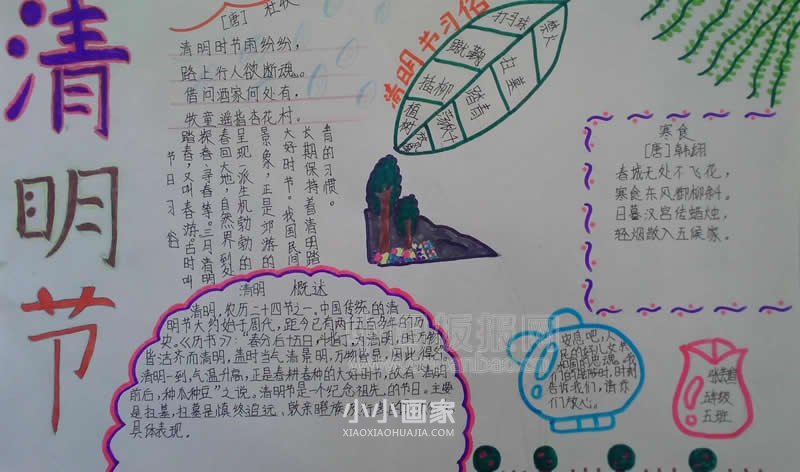 清明节
[唐] 杜牧
清明时节雨纷纷，
路上行人欲断魂。
借问酒家何处有，
牧童遥指杏花村。
清明节习俗
打马球
禁火
蹴鞠
扫墓
插柳
踏青
植树
节日习俗
踏春，又叫春游。古时叫
探春、寻春等。三月清明
春回大地，自然界到处
呈现一派生机勃勃的
景象，正是郊游的
大好时节。我国民间
长期保持着清明踏
青的习惯。
寒食
[唐] 韩翃
春城无处不飞花，
寒食东风御柳斜。
日暮汉宫传蜡烛，
轻烟散入五侯家。
清明 概述
清明，农历二十四节之一，中国传统的清
明节大约始于周代，距今已有两千五百多年的历
史。《历书》：“春分后十五日，斗指丁，为清明，时万物
皆洁齐而清明，盖时当气清景明，万物皆显，因此得名。”
清明一到，气温升高，正是春耕春种的大好时节，故有“清明
前后，种瓜种豆”之说。清明节是一个纪念祖先的节日。主要
是扫墓，扫墓是慎终追远、敦亲睦族
具体表现。
安息吧，人
时刻
告诉我们，请你
们放心。
五年级
五班
小小画家
XIAOXIAOHUAJIA.COM